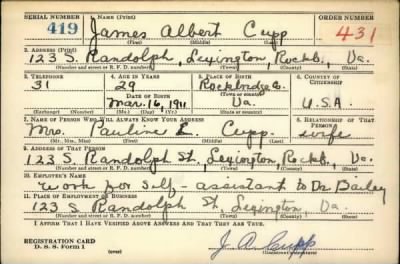 SERIAL NUMBER 1. NAME (Print) ORDER NUMBER
419 James Albert Cupp 431
(First) (Middle) (Last)
2. ADDRESS (Print)
123 S. Randolph, Lexington, Rockb., Va.
(Number and street or R. F. D. number) (Town) (County) (State)
3. TELEPHONE 4. AGE IN YEARS 5. PLACE OF BIRTH 6. COUNTRY OF CITIZENSHIP
31 29 Rockbridge Co.
DATE OF BIRTH (Town or county)
Mar. 16, 1911 Va. U.S.A.
(Mo.) (Day) (Yr.) (State or country)
7. NAME OF PERSON WHO WILL ALWAYS KNOW YOUR ADDRESS 8. RELATIONSHIP OF THAT PERSON
Mrs. Pauline L. Cupp wife
(Mr., Mrs., Miss) (First) (Middle) (Last)
9. ADDRESS OF THAT PERSON
123 S. Randolph St. Lexington, Rockb., Va.
(Number and street or R. F. D. number) (Town) (County) (State)
10. EMPLOYER'S NAME
Work for self - assistant to Dr Bailey
11. PLACE OF EMPLOYMENT OR BUSINESS
123 S Randolph St. Lexington, Va.
(Number and street or R. F. D. number) (Town) (County) (State)
I AFFIRM THAT I HAVE VERIFIED ABOVE ANSWERS AND THAT THEY ARE TRUE.
REGISTRATION CARD
D. S. S. Form 1 (over) J. A. Cupp
(Registrant's signature)